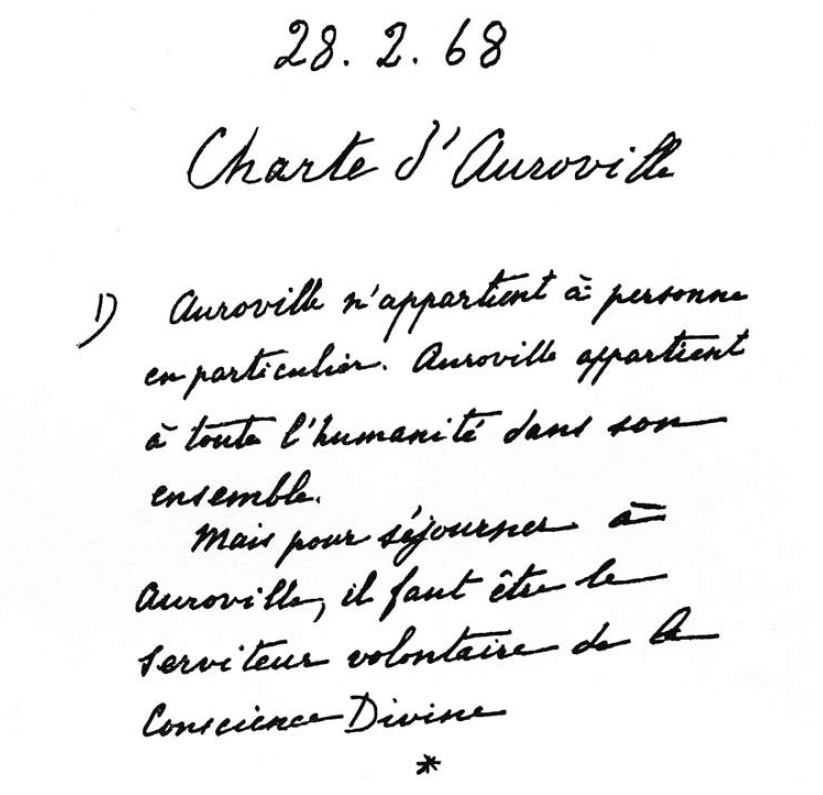 28. 2. 68
Charte d'Auroville
1) Auroville n'appartient à personne
en particulier. Auroville appartient
à toute l'humanité dans son
ensemble.
Mais pour séjourner à
Auroville, il faut être le
serviteur volontaire de la
Conscience Divine
*